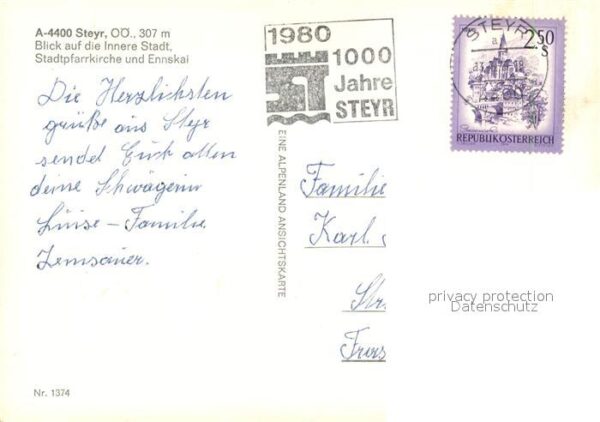 A-4400 Steyr, OÖ., 307 m
Blick auf die Innere Stadt,
Stadtpfarrkirche und Ennskai
Die Herzlichsten
grüße aus Styr
sendet Euch allen
deine Schwägerin
Luise - Familie
Zemsauer.
Nr. 1374
1980
1000
Jahre
STEYR
EINE ALPENLAND ANSICHTSKARTE
STEYR
2.50
S
REPUBLIK ÖSTERREICH
Familie
Karl
Str.
privacy protection
Datenschutz